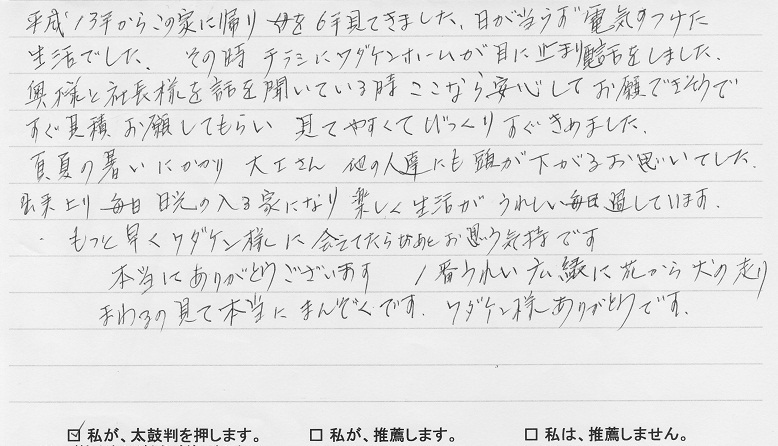 平成13年からこの家に帰り 母を6年見てきました、日が当らず電気をつけた
生活でした、 その時 チラシにワダケンホームが目に止まり電話をしました、
奥様と社長様を話を聞いている時 ここなら安心して お願できそうで
すぐ見積お願してもらい 見てやすくてびっくりすぐきめました、
真夏の暑いにかかり 大工さん 他の人達にも頭が下がるお思いでした、
出来上り 毎日 日光の入る家になり 楽しく生活が うれしい毎日過しています、
・もっと早くワダケン様に会えてたらなあとお思う気持です
本当にありがとうございます 1番うれしい広縁に 犬の走り
まわるの見て本当に まんぞくです、ワダケン様ありがとうです、
☑ 私が、太鼓判を押します。 □ 私が、推薦します。 □ 私は、推薦しません。